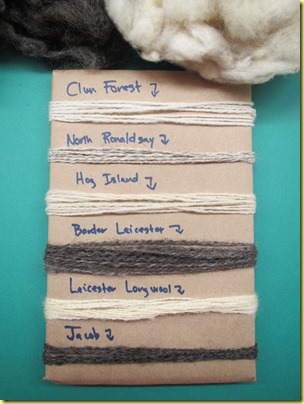 Clun Forest
North Ronaldsay
Hog Island
Border Leicester
Leicester Longwool
Jacob